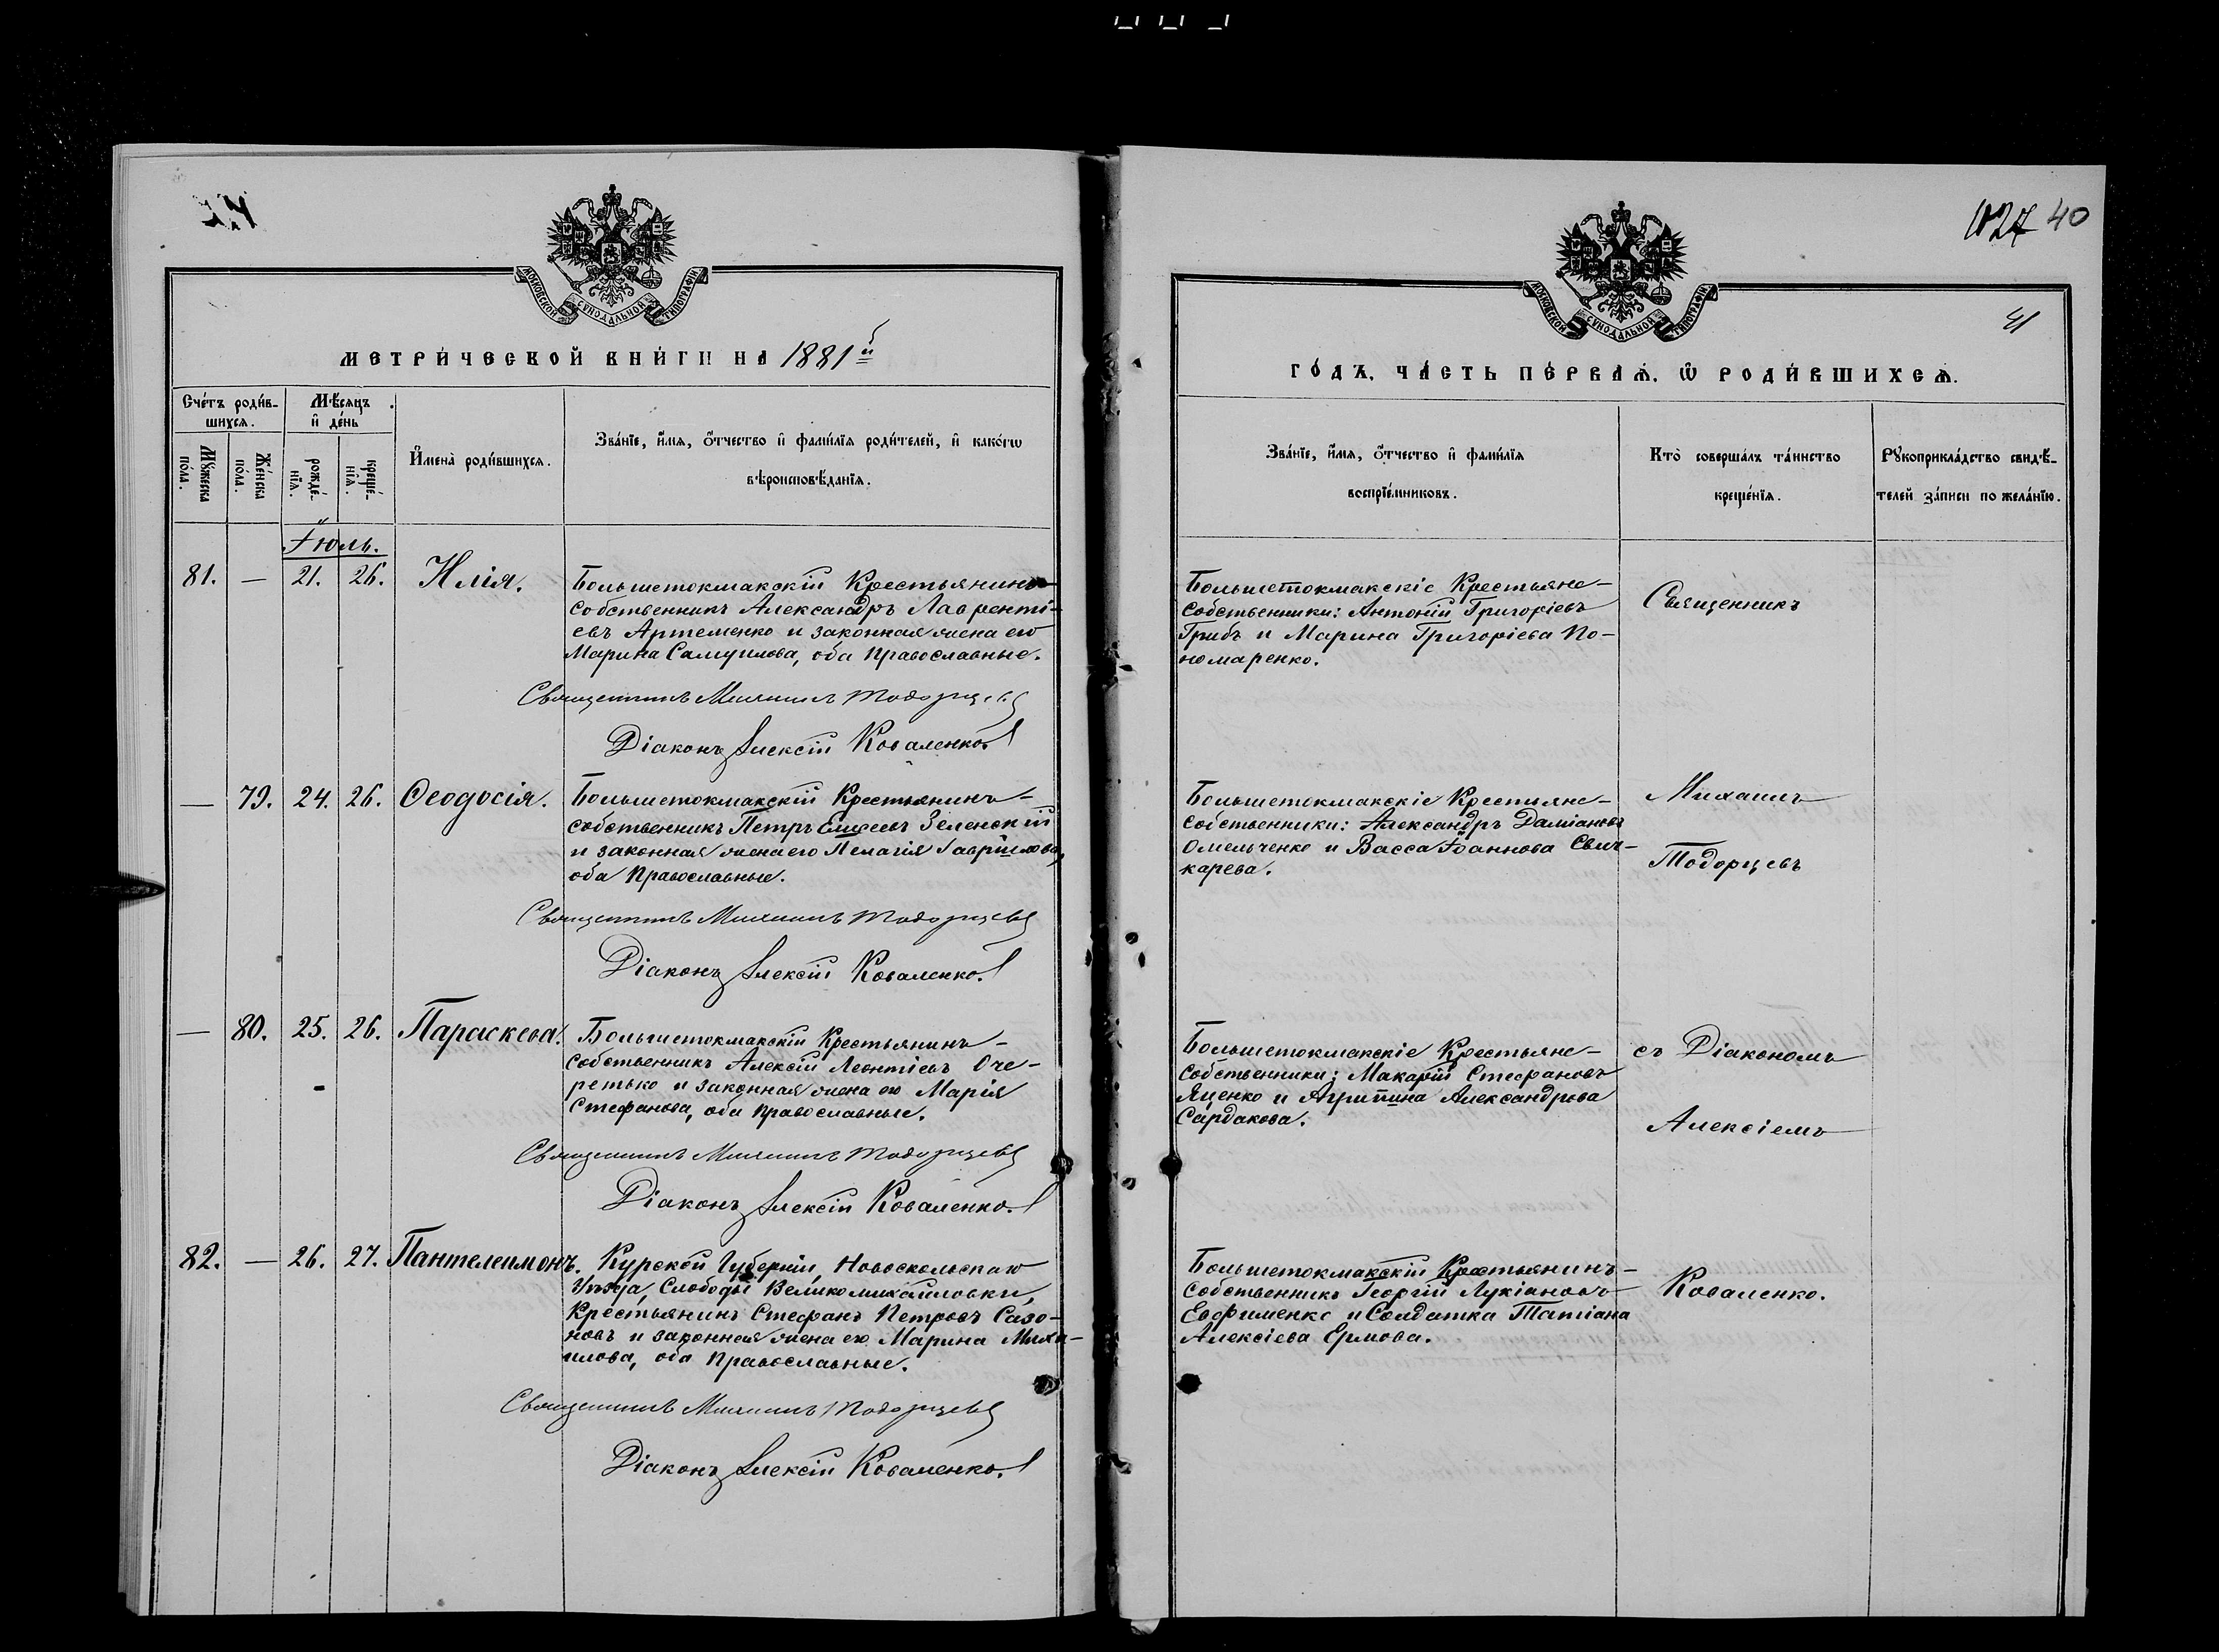 1027 40
МОСКОВСКОЙ СѴНОДАЛЬНОЙ ТИПОГРАФІИ
МЕТРИ́ЧЕСКОЙ КНИ́ГИ НА 1881й
Сче́тъ роди́в-
шихся.
Мѣ́сяцъ
и҆ де́нь
Мꙋ́жеска
по́ла.
Же́нска
по́ла.
рожде́-
нїѧ.
креще́-
нїѧ.
И҆мена̀ роди́вшихся.
Зва́нїе, и҆́мѧ, ѻ҆́тчество и҆ фами́лїѧ роди́телей, и҆ како́гѡ
вѣроисповѣ́данїѧ.
Іюль.
81. — 21. 26. Илія.
Большетокмакскій Крестьянинъ-
собственникъ Александръ Лавренті-
евъ Артеменко и законная жена его
Марина Самуилова, оба Православные.
Священникъ Михаилъ Тодорцевъ
Діаконъ Алексій Коваленко.
— 79. 24. 26. Ѳеодосія.
Большетокмакскій Крестьянинъ-
собственникъ Петръ Елисеевъ Зеленскій
и законная жена его Пелагія Гавріилова,
оба Православные.
Священникъ Михаилъ Тодорцевъ
Діаконъ Алексій Коваленко.
— 80. 25. 26. Параскева.
Большетокмакскій Крестьянинъ-
собственникъ Алексій Леонтіевъ Оче-
ретько и законная жена его Марія
Стефанова, оба православные.
Священникъ Михаилъ Тодорцевъ
Діаконъ Алексій Коваленко.
82. — 26. 27. Пантелеимонъ.
Курской Губерніи, Новоскольскаго
Уѣзда, Слободы Великомихайловки,
Крестьянинъ Стефанъ Петровъ Сазо-
новъ и законная жена его Марина Миха-
илова, оба Православные.
Священникъ Михаилъ Тодорцевъ
Діаконъ Алексій Коваленко.
МОСКОВСКОЙ СѴНОДАЛЬНОЙ ТИПОГРАФІИ
41
ГО́ДЪ, ЧА́СТЬ ПЕ́РВАѦ, Ѡ҆ РОДИ́ВШИХСѦ.
Зва́нїе, и҆́мѧ, ѻ҆́тчество и҆ фами́лїѧ
воспрїе́мниковъ.
Кто̀ соверша́лъ та́инство
креще́нїѧ.
Рꙋкоприкла́дство свидѣ́-
телей за́писи по жела́нїю.
Большетокмакскіе Крестьяне-
собственники: Антоній Григоріевъ
Грибъ и Марина Григоріева По-
номаренко.
Священникъ
Большетокмакскіе Крестьяне-
собственники: Александръ Даміановъ
Омельченко и Васса Іоаннова Свич-
карева.
Михаилъ
Тодорцевъ
Большетокмакскіе Крестьяне-
собственники: Макарій Стефановъ
Яценко и Агрипина Александрова
Сардакова.
съ Діакономъ
Алексіемъ
Большетокмакскій Крестьянинъ-
собственникъ Георгій Лукіановъ
Евфименко и Солдатка Татіана
Алексіева Ермова.
Коваленко.